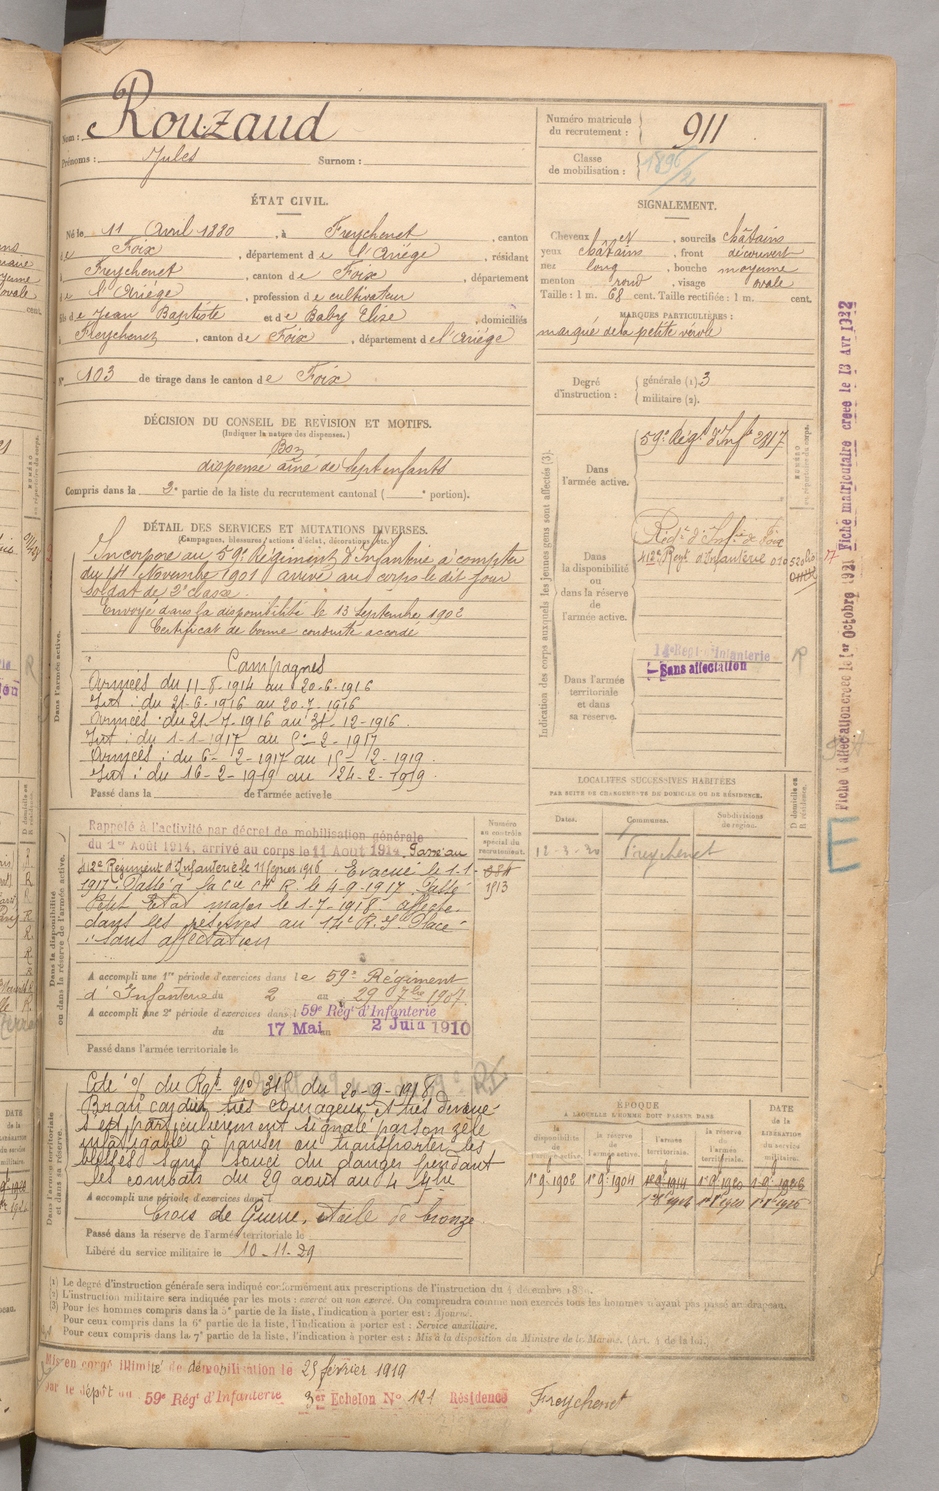 Nom : Rouzaud
Prénoms : Jules Surnom :
Numéro matricule du recrutement : 911
Classe de mobilisation : 1896/2
ÉTAT CIVIL.
Né le 11 Avril 1880, à Freychenet, canton
de Foix, département de l'Ariége, résidant
à Freychenet, canton de Foix, département
de l'Ariége, profession de cultivateur
fils de Jean Baptiste et de Baby Elise, domiciliés
à Freychenet, canton de Foix, département de l'Ariége
N° 103 de tirage dans le canton de Foix
SIGNALEMENT.
Cheveux et, sourcils châtains
yeux châtains, front découvert
nez long, bouche moyenne
menton rond, visage ovale
Taille : 1 m. 68 cent. Taille rectifiée : 1 m. cent.
MARQUES PARTICULIÈRES :
marqué de la petite vérole
Degré d'instruction : générale (1). 3
militaire (2).
DÉCISION DU CONSEIL DE REVISION ET MOTIFS.
(Indiquer la nature des dispenses.)
Bon
dispensé ainé de sept enfants
Compris dans la 2e partie de la liste du recrutement cantonal ( e portion).
DÉTAIL DES SERVICES ET MUTATIONS DIVERSES.
(Campagnes, blessures, actions d'éclat, décorations, etc.)
Dans l'armée active.
Incorporé au 59e Régiment d'Infanterie à compter
du 14 Novembre 1901 arrivé au corps le dit jour
soldat de 2e classe.
Envoyé dans la disponibilité le 13 Septembre 1902
Certificat de bonne conduite accordé
Campagnes
Armées du 11-8-1914 au 20-6-1916
Int : du 21-6-1916 au 20-7-1916
Armées : du 21-7-1916 au 31-12-1916.
Int : du 1-1-1917 au 5-2-1917
Armées : du 6-2-1917 au 15-2-1919.
Int : du 16-2-1919 au 24-2-1919.
Passé dans la de l'armée active le
Dans la disponibilité ou dans la réserve de l'armée active.
Rappelé à l'activité par décret de mobilisation générale
du 1er Août 1914, arrivé au corps le 11 Août 1914. Passé au
412e Régiment d'Infanterie le 11 février 1916. Evacué le 1-1-
1917. Passé à la Cie CH R. le 4-9-1917. Passé
Petit Etat major le 1-7-1918. affecté
dans les réserves au 14e R.I. Placé
"sans affectation
Numéro au contrôle spécial du recrutement.
1513
A accompli une 1re période d'exercices dans le 59e Régiment
d'Infanterie du 2 au 29 7bre 1907.
A accompli une 2e période d'exercices dans le 59e Régt d'Infanterie
du 17 Mai au 2 Juin 1910
Passé dans l'armée territoriale le
Dans l'armée territoriale et dans sa réserve.
Cité o/ du Rgt no 318 du 20-9-1918.
Brancardier très courageux et très dévoué
s'est particulièrement signalé par son zèle
infatigable à panser ou transporter les
blessés sans souci du danger pendant
les combats du 29 août au 4 7bre
A accompli une période d'exercices dans l
Croix de Guerre, étoile de bronze
Passé dans la réserve de l'armée territoriale le
Libéré du service militaire le 10-11-29
Indication des corps auxquels les jeunes gens sont affectés (3).
NUMÉRO au répertoire du corps.
Dans l'armée active. 59e Régt d'Infie 2817
Dans la disponibilité ou dans la réserve de l'armée active.
Régt d'Infie de Foix
412e Regt d'Infanterie
Dans l'armée territoriale et dans sa réserve.
14e Regt d'Infanterie
Sans affectation
R
LOCALITÉS SUCCESSIVES HABITÉES
PAR SUITE DE CHANGEMENTS DE DOMICILE OU DE RÉSIDENCE.
Dates. Communes. Subdivisions de région. D domicile ou R résidence.
12-3-20 Freychenet
ÉPOQUE
À LAQUELLE L'HOMME DOIT PASSER DANS
DATE de la LIBÉRATION du service militaire.
la disponibilité de l'armée active. la réserve de l'armée active. l'armée territoriale. la réserve de l'armée territoriale.
1er 9bre 1902 1er 9bre 1904
Fiche d'affectation créée le 1er Octobre 1921 Fiche matriculaire créée le 13 Avr 1922
E
(1) Le degré d'instruction générale sera indiqué conformément aux prescriptions de l'instruction du 4 décembre 1889.
(2) L'instruction militaire sera indiquée par les mots : exercé ou non exercé. On comprendra comme non exercés tous les hommes n'ayant pas passé au drapeau.
(3) Pour les hommes compris dans la 5e partie de la liste, l'indication à porter est : Ajourné.
Pour ceux compris dans la 6e partie de la liste, l'indication à porter est : Service auxiliaire.
Pour ceux compris dans la 7e partie de la liste, l'indication à porter est : Mis à la disposition du Ministre de la Marine. (Art. 4 de la loi.)
Mis en congé illimité de démobilisation le 25 février 1919
par le dépôt du 59e Régt d'Infanterie 3er Echelon No 121 Résidence Freychenet